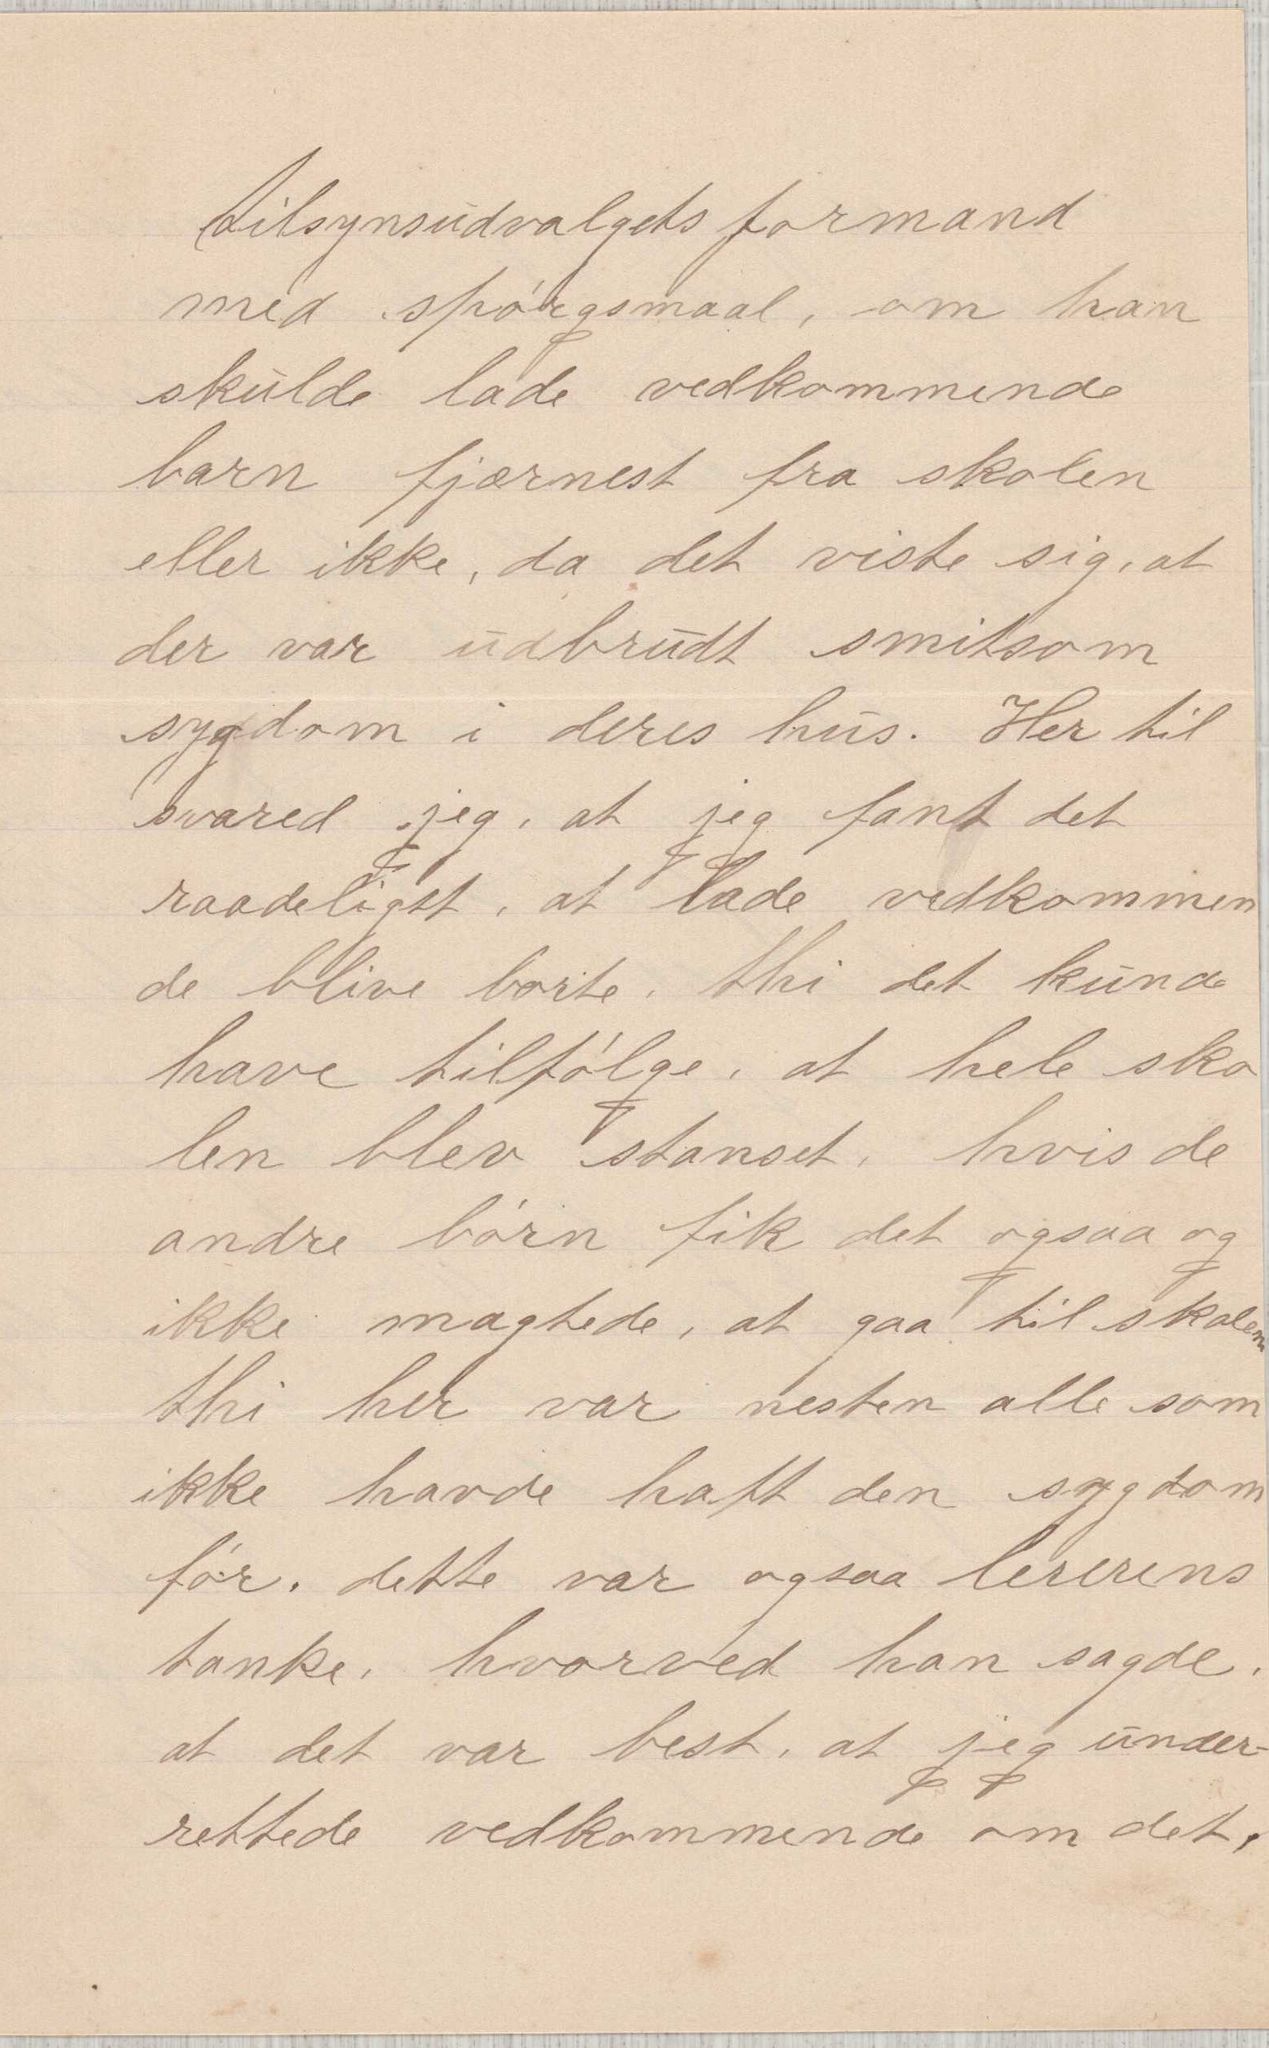 tilsynsudvalgets formand
med spórgsmaal, om han
skulde lade vedkommende
barn fjærnest fra skolen
eller ikke, da det viste sig, at
der var udbrudt smitsom
sygdom i deres hus. Her til
svared jeg, at jeg fant det
raadeligst, at lade vedkommen
de blive borte, thi det kunde
have tilfólge, at hele sko
len blev stanset, hvis de
andre bórn fik det ogsaa og
ikke magtede, at gaa til skolen
thi her var nesten alle som
ikke havde haft den sygdom
fór. dette var ogsaa lererens
tanke, hvorved han sagde,
at det var best, at jeg under-
rettede vedkommende om det.